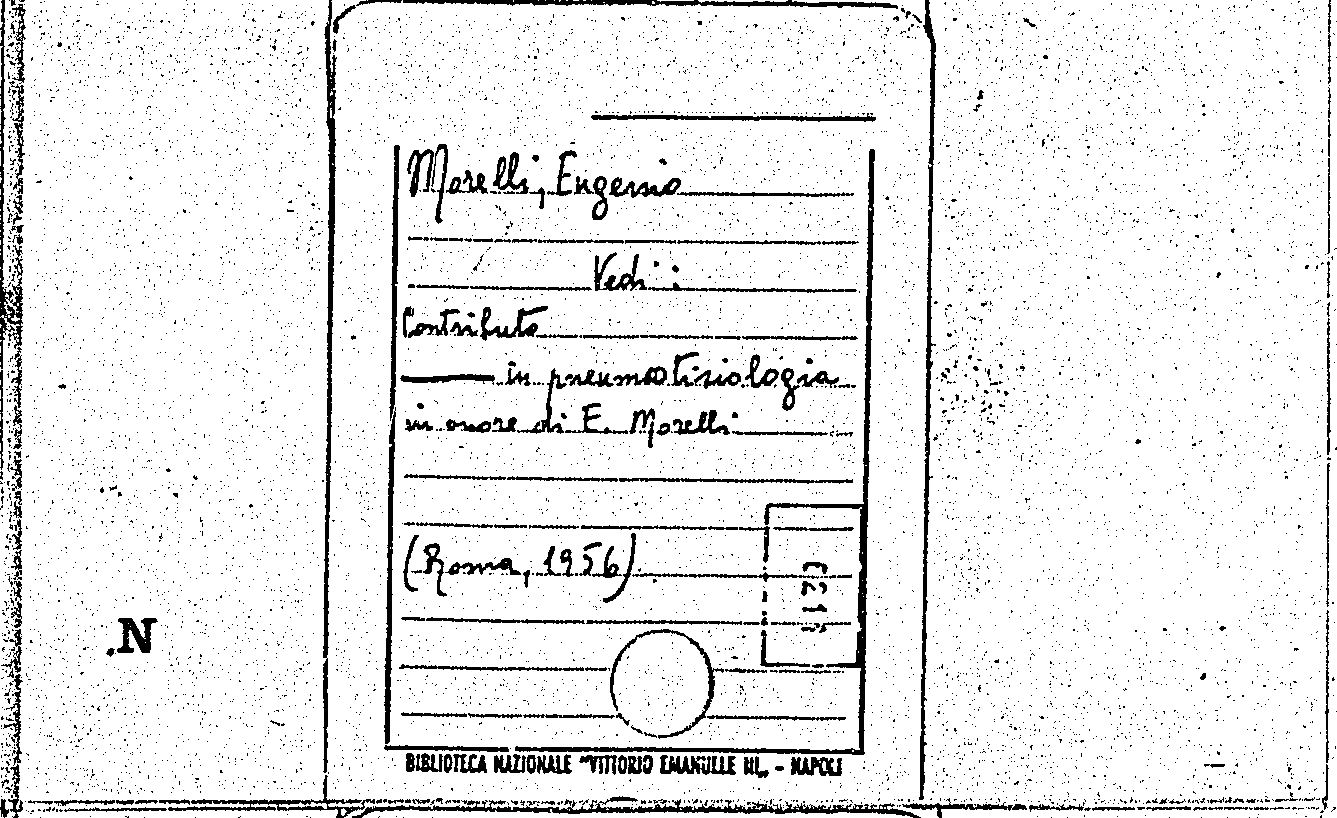 Morelli, Eugenio
Vedi:
Contributo
in pneumotisiologia
in onore di E. Morelli
(Roma, 1956)
.N
BIBLIOTECA NAZIONALE "VITTORIO EMANUELE III„ - NAPOLI